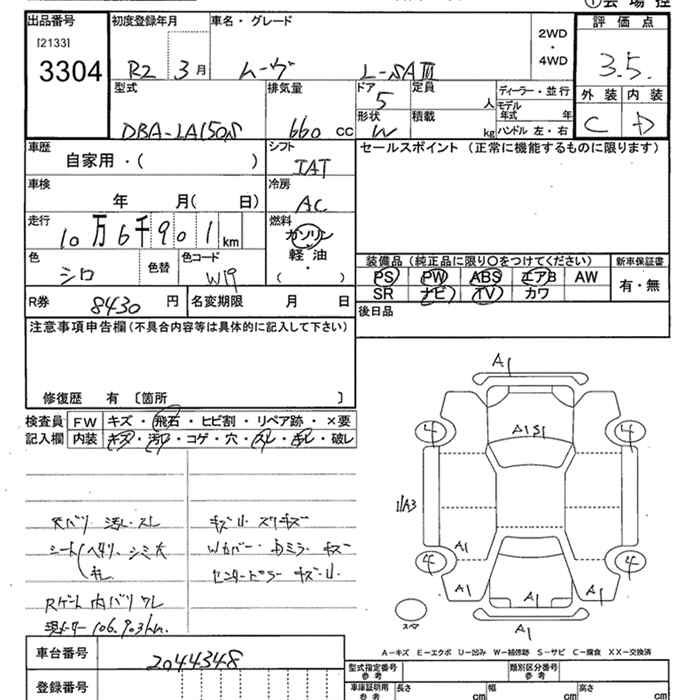 出品番号 初度登録年月 車名・グレード 2WD・4WD 評価点
[2133]
3304 R2 3月 ムーヴ L-SAⅢ 3.5.
型式 排気量 ドア 定員 ディーラー・並行 外装 内装
DBA-LA150S 660 CC 5 人 モデル年式 年 C D
形状 積載
W kg ハンドル 左・右
車歴 シフト セールスポイント (正常に機能するものに限ります)
自家用・( ) IAT
車検 冷房
年 月( 日) AC
走行 燃料
10万6千901km ガソリン
軽油
・
( )
色 色替 色コード
シロ W19
装備品 (純正品に限り○をつけてください) 新車保証書
PS PW ABS エアB AW 有・無
SR ナビ TV カワ
R券 8430 円 名変期限 月 日
後日品
注意事項申告欄(不具合内容等は具体的に記入して下さい)
修復歴 有 〔箇所 〕
検査員 FW キズ・飛石・ヒビ割・リペア跡・×要
記入欄 内装 キズ・汚レ・コゲ・穴・スレ・キレ・破レ
A1
A1S1
4 4
A3
A1
4 4
A1 A1
A1
スペア
シート シミ大
Wカバー・ドミラー キズ
センターピラー キズ・凹
Rゲート内バリワレ
現メーター 106.903km
A-キズ E-エクボ U-凹み W-補修跡 S-サビ C-腐食 XX-交換済
車台番号 2044348
登録番号
型式指定番号 参考 類別区分番号 参考
車庫証明用 参考 長さ cm 幅 cm 高さ cm